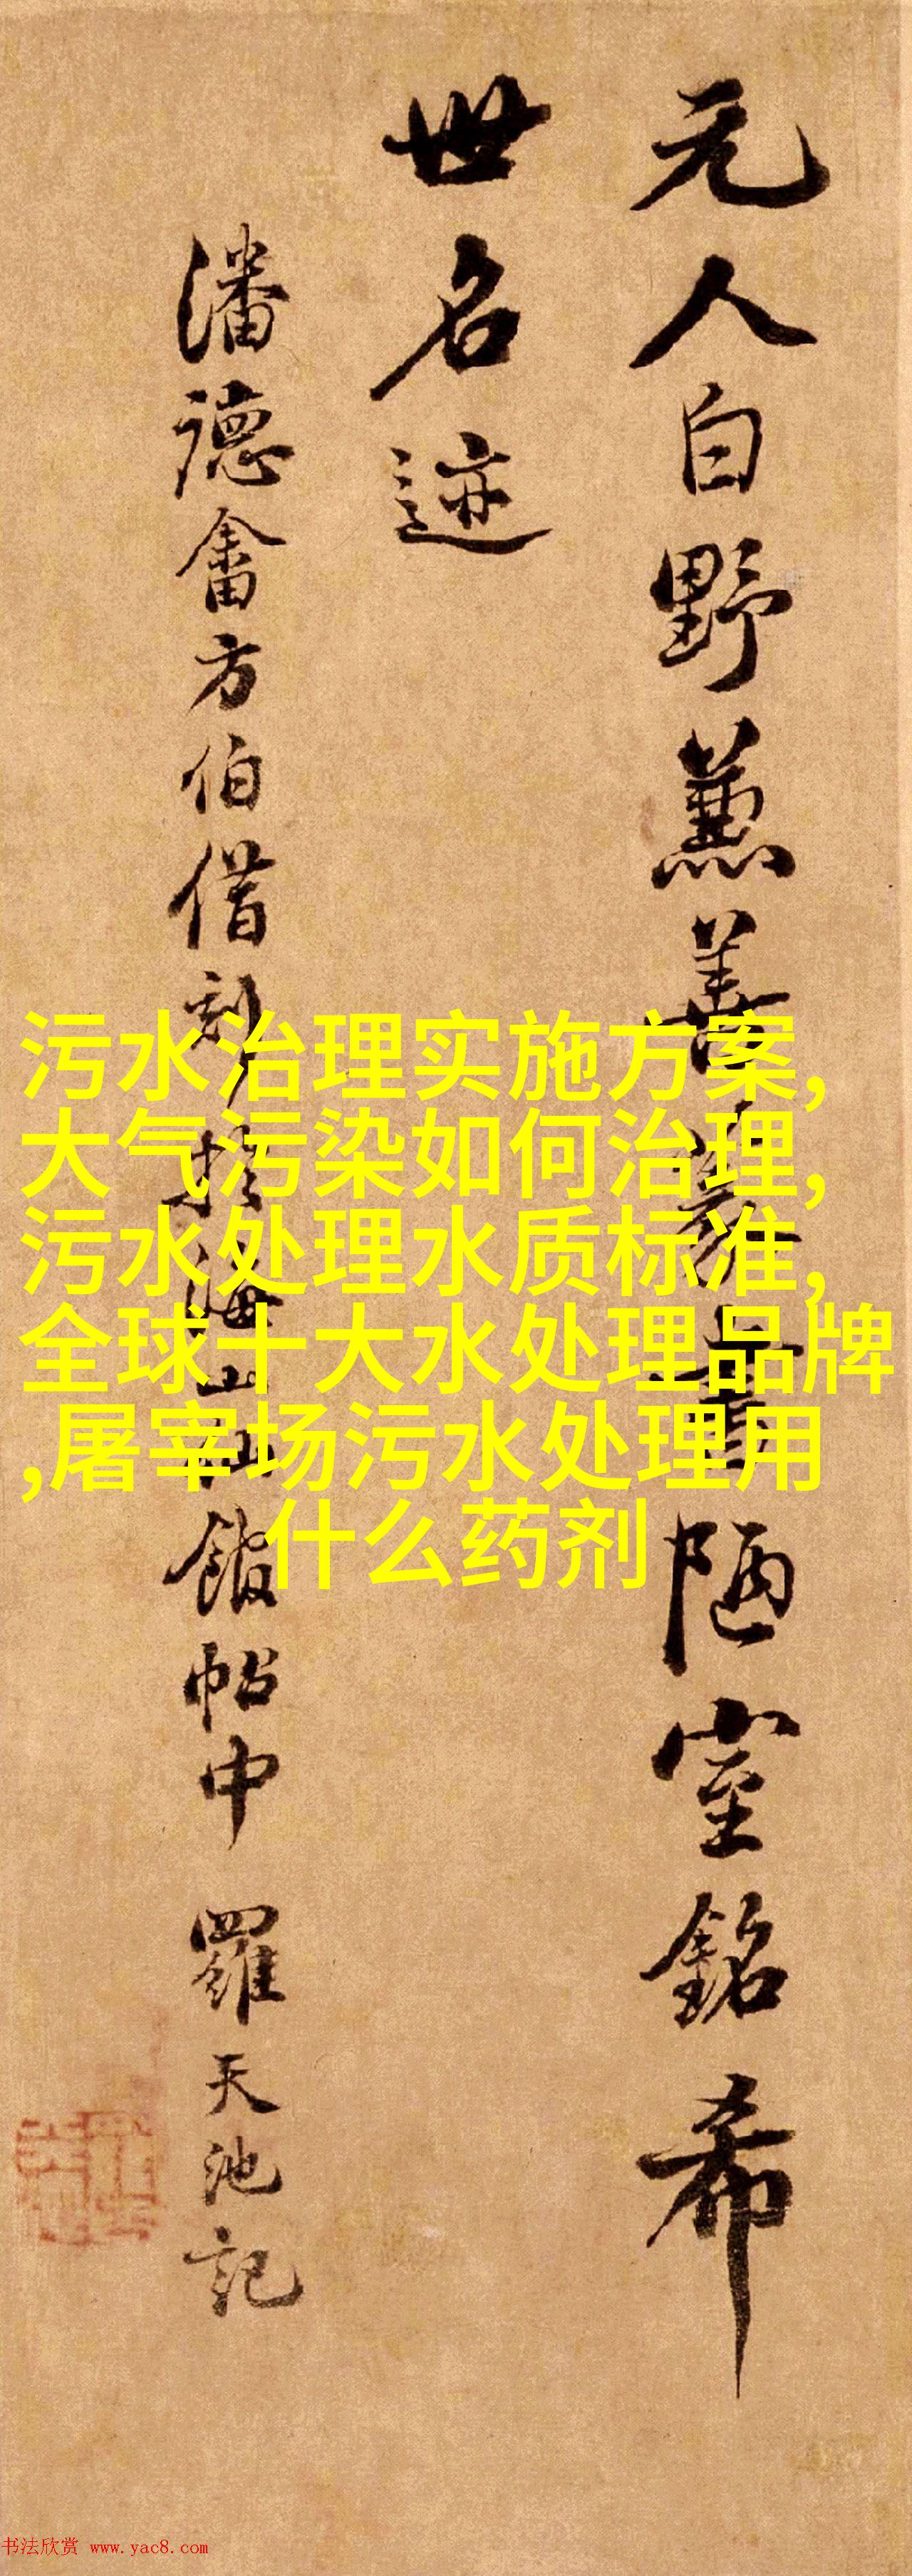 元人白野薫善篆書陋室銘希
世名迹
潘德畬方伯借刻於海山仙館帖中 羅天池記
污水治理实施方案,
大气污染如何治理,
污水处理水质标准,
全球十大水处理品牌
,屠宰场污水处理用
什么药剂
书法欣赏 www.yac8.com